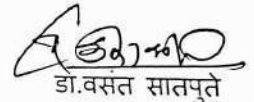 डॉ.वसंत सातपुते